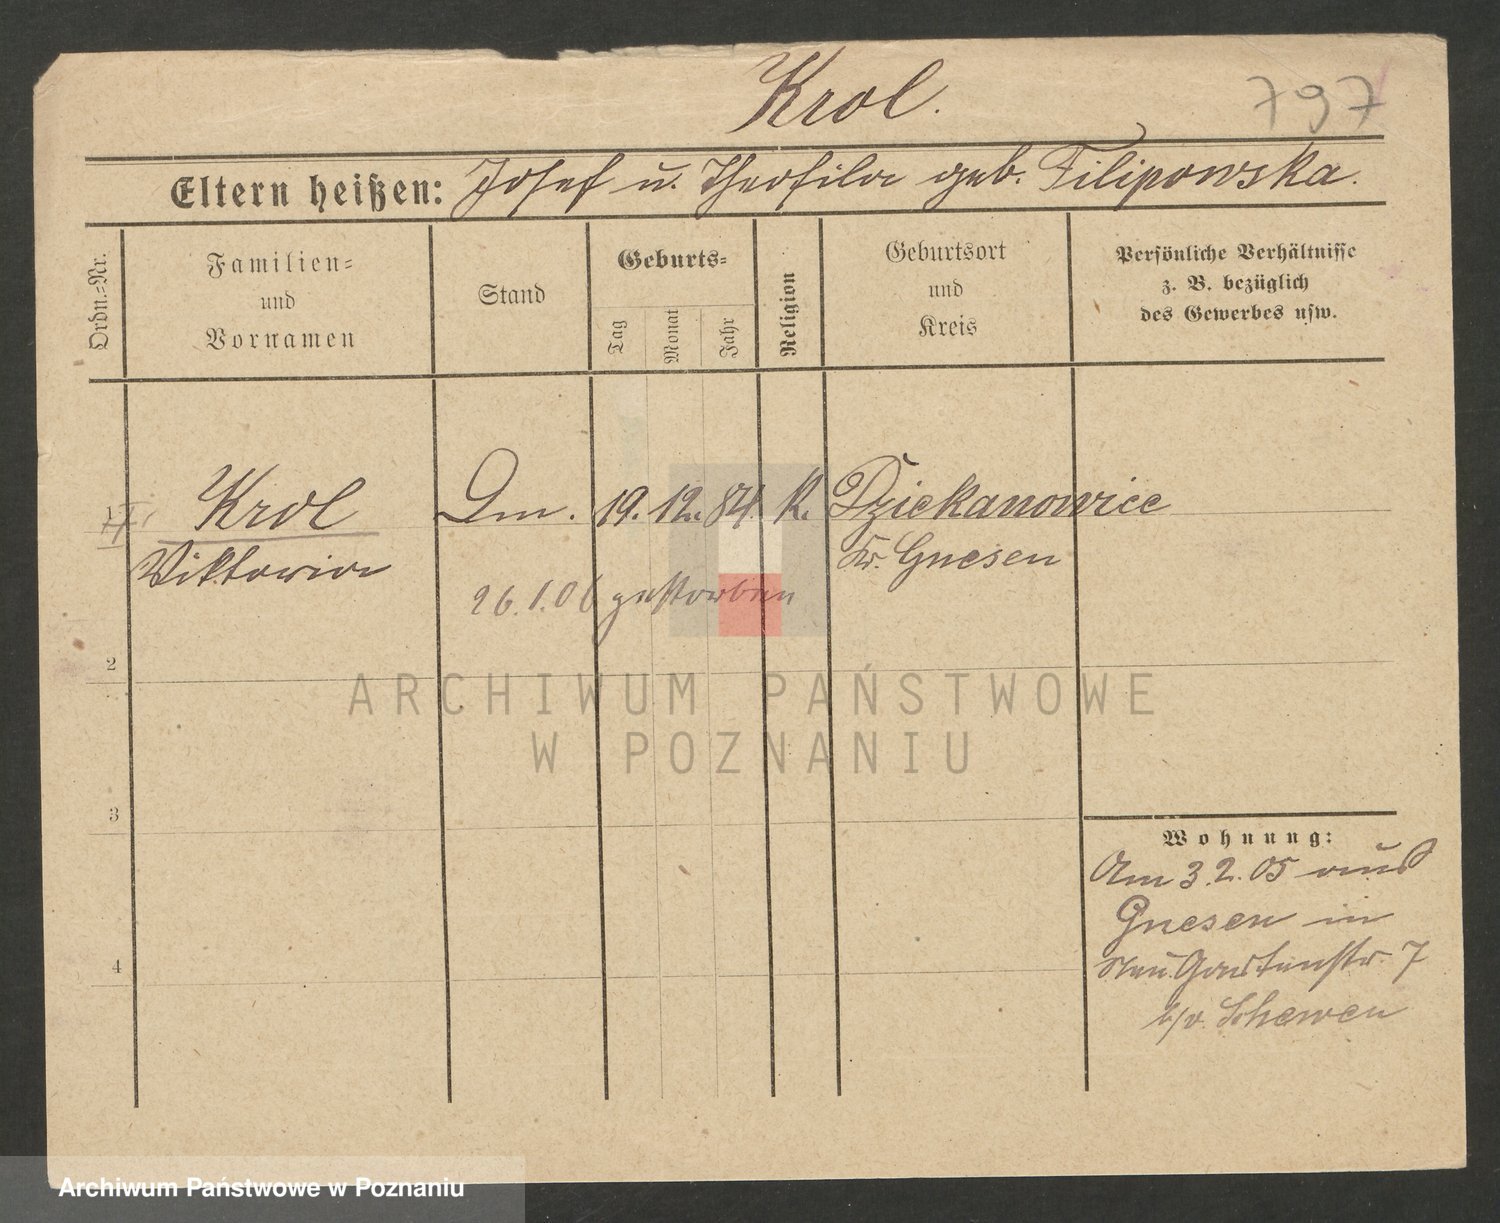 Krol.
797
Eltern heißen: Josef u. Theofila geb. Filipowska.
Ordn.-Nr.
Familien-
und
Vornamen
Stand
Geburts-
Tag
Monat
Jahr
Religion
Geburtsort
und
Kreis
Persönliche Verhältnisse
z. B. bezüglich
des Gewerbes usw.
1
Krol
Viktoria
19. 12. 84. K.
Dziekanowice
Kr. Gnesen
26.1.06 gestorben
2
ARCHIWUM PAŃSTWOWE
W POZNANIU
3
4
Wohnung:
Am 3.2.05 aus
Gnesen in
Neu Gartenstr. 7
b/v. Schewen
Archiwum Państwowe w Poznaniu